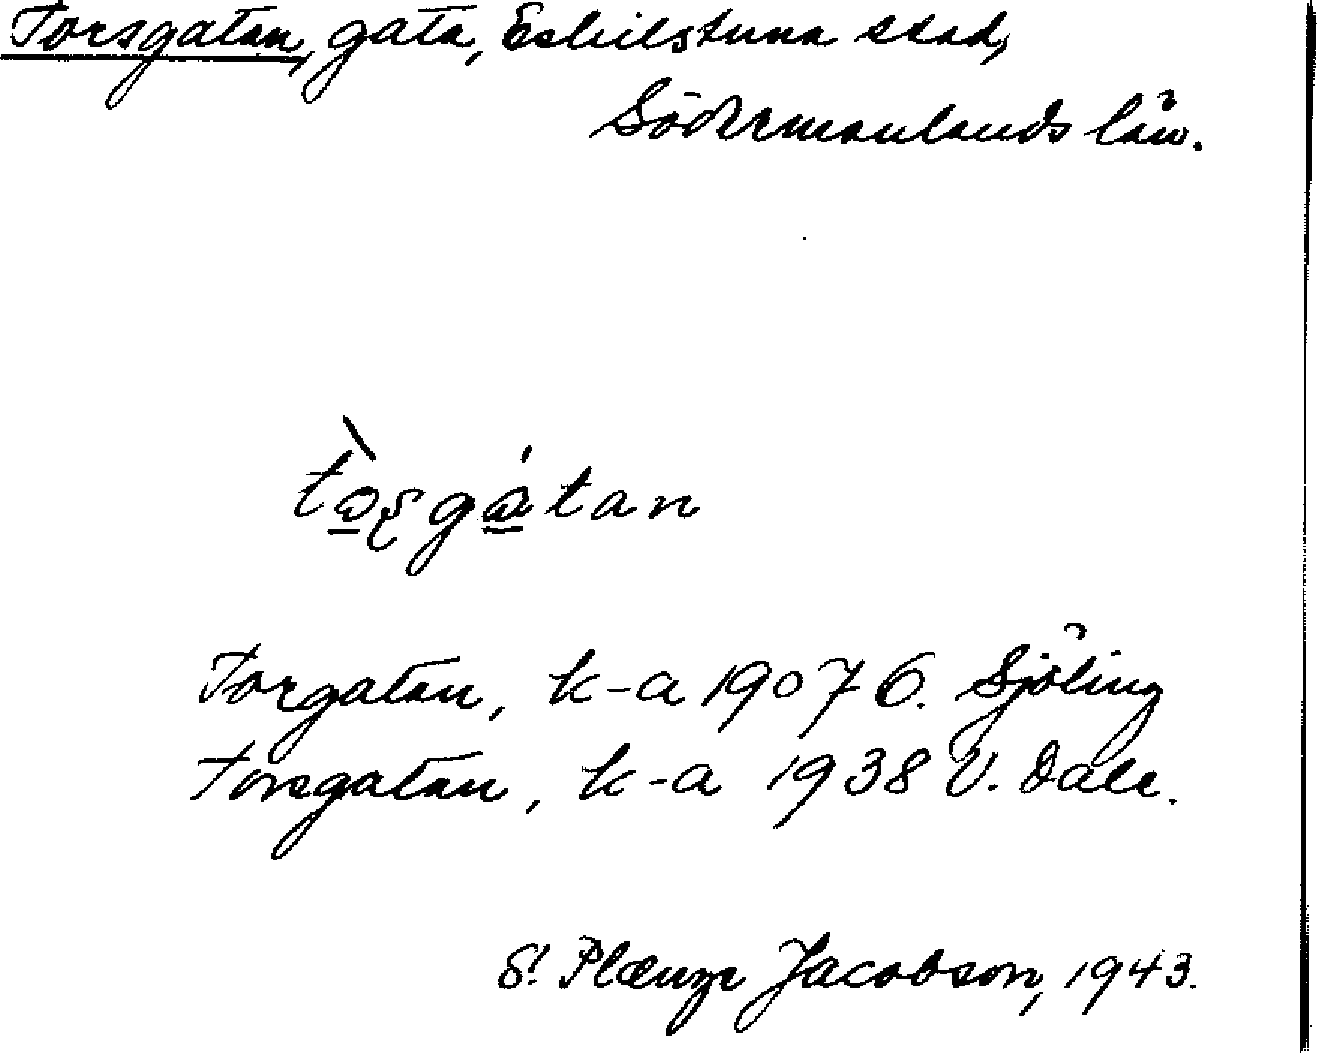 Torsgatan, gata, Eskilstuna stad,
Södermanlands län.
tò̱ʂgá̱tan
Torgatan, k-a 1907 G. Sjöling
Torsgatan, k-a 1938 V. Dahl.
Jacobson, 1943.